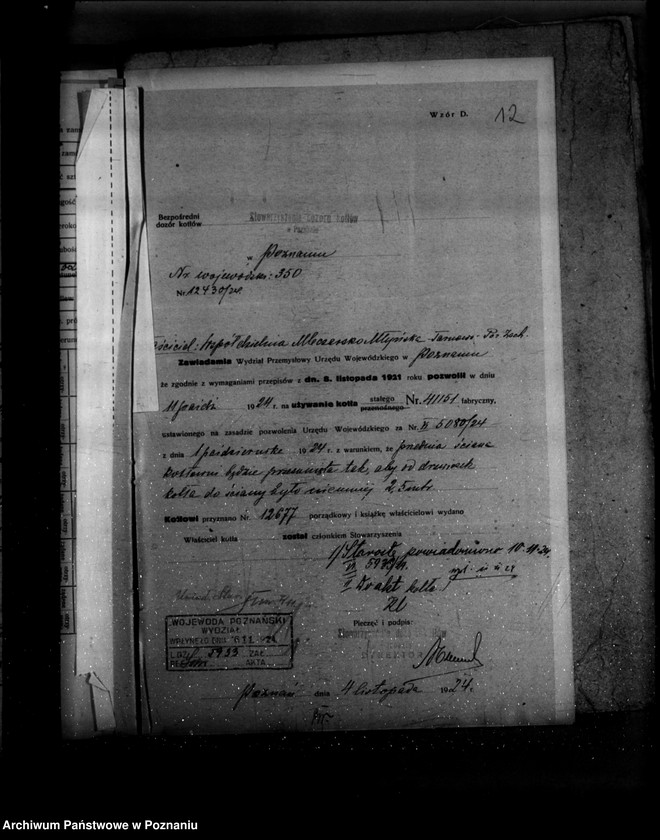 Wzór D. 12
Bezpośredni
dozór kotłów
Stowarzyszenie dozoru kotłów
w Poznaniu
w Poznaniu
Nr. wojewódzki: 350
Nr. 12430/24.
Spółdzielnia Mleczarsko Młyńska Tarnowo
Zawiadamia Wydział Przemysłowy Urzędu Wojewódzkiego w Poznaniu
że zgodnie z wymaganiami przepisów z dn. 8. listopada 1921 roku pozwolił w dniu
1924 r. na używanie kotła stałego przenośnego Nr. 41151 fabryczny,
ustawionego na zasadzie pozwolenia Urzędu Wojewódzkiego za Nr. II 5080/24
z dnia 1 października 1924 r. z warunkiem, że przednia ściana
będzie przesunięta tak, aby od drzwiczek
kotła do ściany było niemniej 2,5 mtr
Kotłowi przyznano Nr. 12677 porządkowy i książkę właścicielowi wydano
Właściciel kotła został członkiem Stowarzyszenia
1/ Starostę powiadomiono 10.11.24.
II 5933/24.
2/ Do akt kotła
Pieczęć i podpis:
WOJEWODA POZNAŃSKI
WYDZIAŁ
WPŁYNĘŁO DNIA 6 11 24
L. DZ. 5933 ZAŁ.
AKTA
Poznań dnia 4 listopada 1924 r.
Archiwum Państwowe w Poznaniu